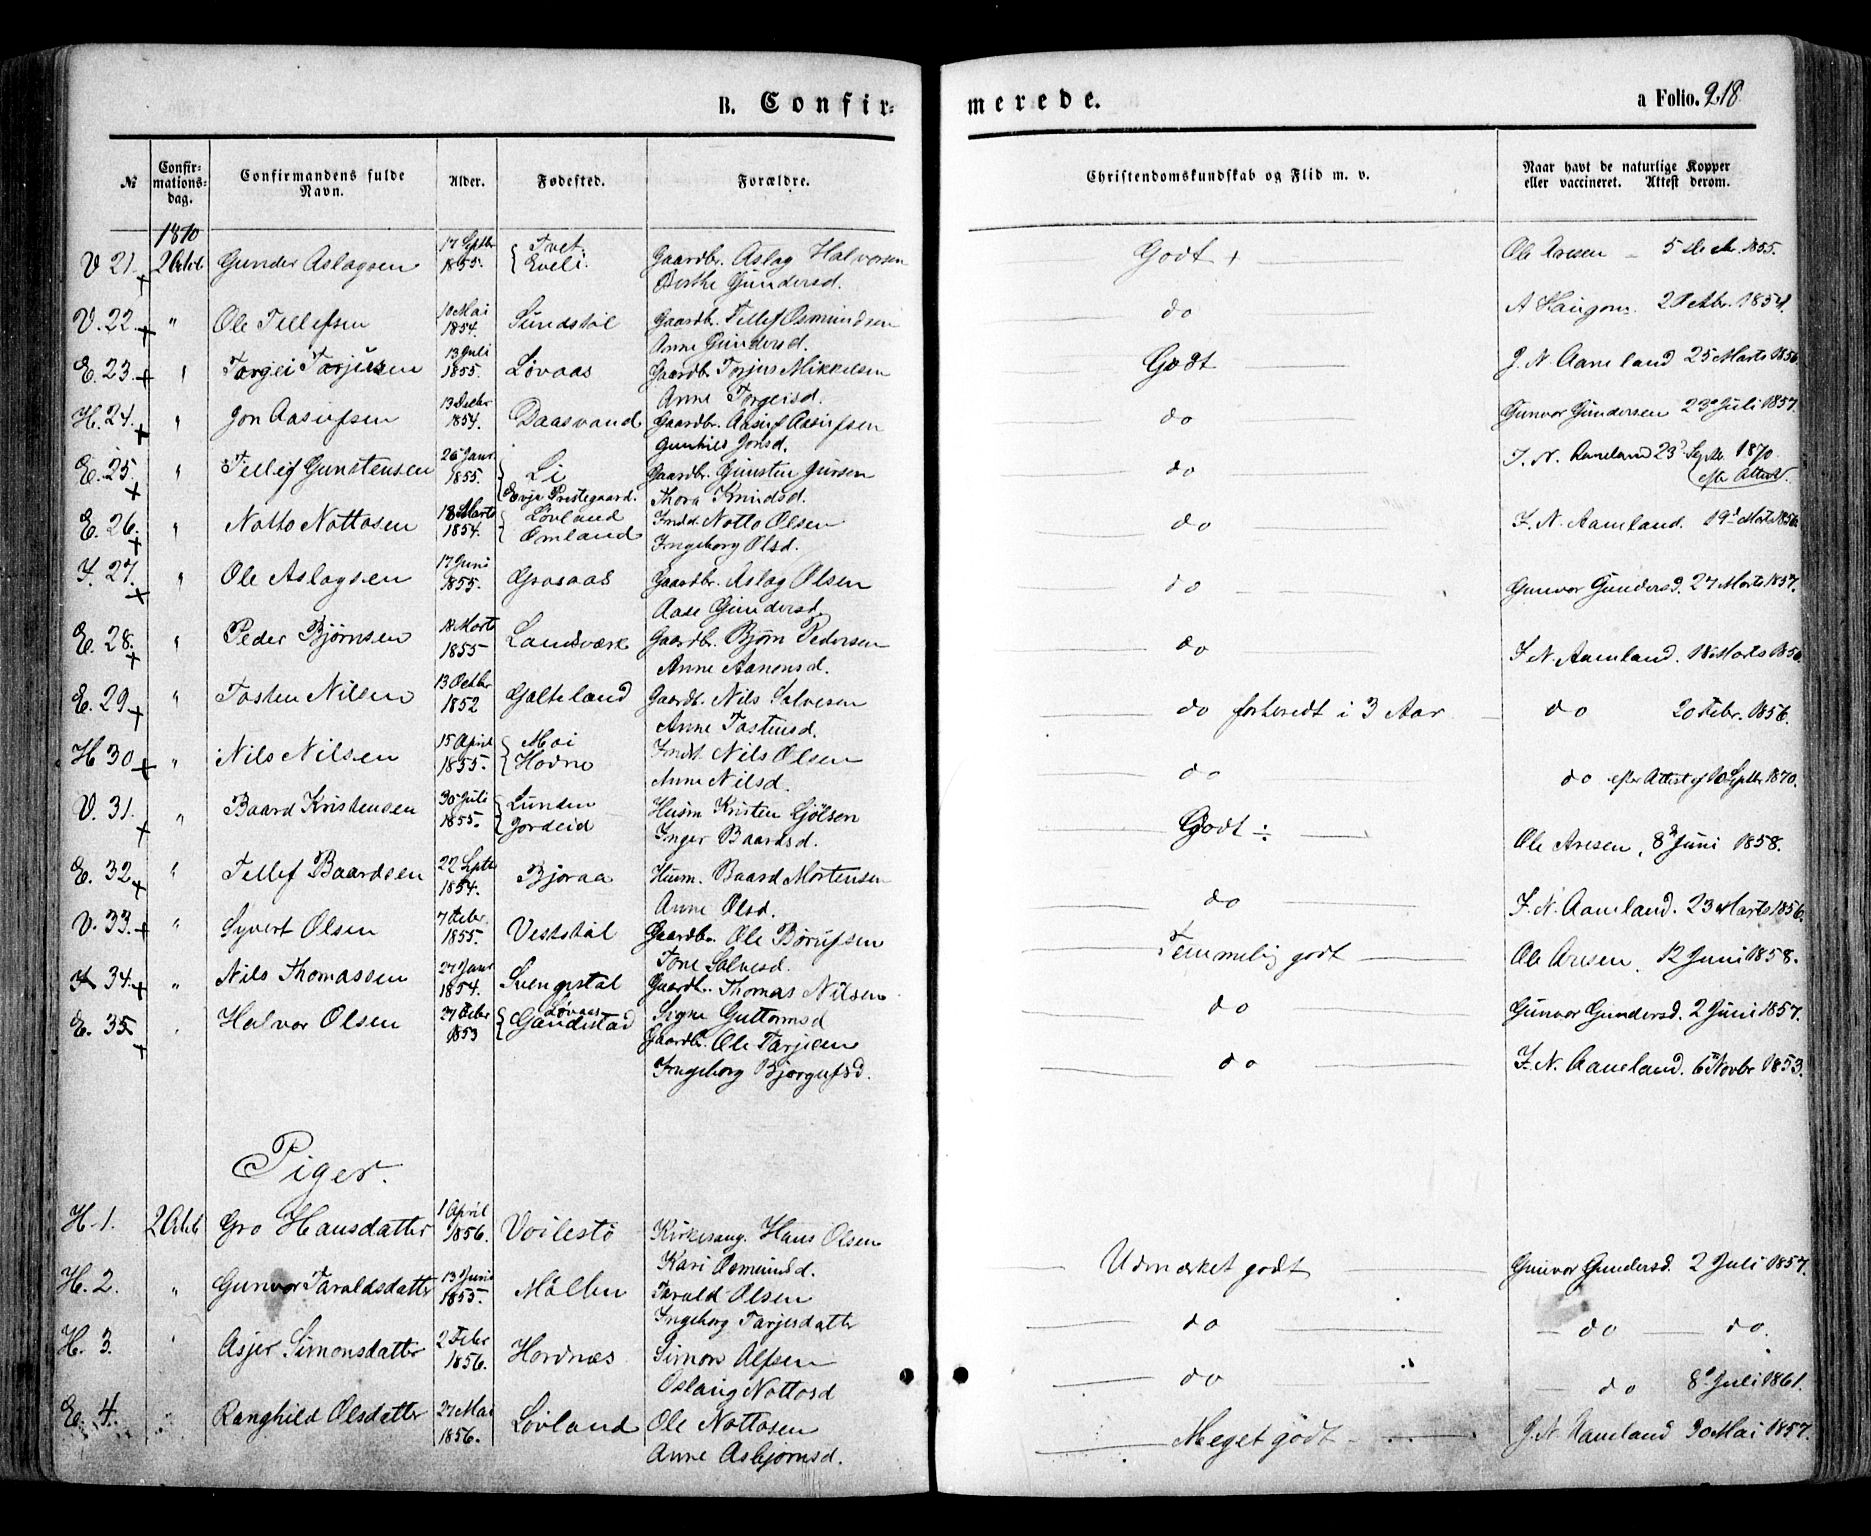 B. Confir- merede. a Folio. 218
№ Confir-mations-dag. Confirmandens fulde Navn. Alder. Fødested. Forældre. Christendomskundskab og Flid m. v. Naar havt de naturlige Kopper eller vaccineret. Attest derom.
1870
V 21. + 2 Octb Gunder Aslagsen 17 Septbr 1855. { Tvet. Eveli. Gaardbr. Aslag Halvorsen Godt + Ole Aresen 5 1855.
Berthe Gundersd.
V. 22. + " Ole Tellefsen 10 Mai 1854. Sundstøl Gaardbr. Tellef Osmundsen do A Haugom. 1854.
Anne Gundersd.
E. 23. + " Torgei Torjusen 13 Juli 1855. Løvaas Gaardbr. Torjus Mikkelsen Godt J. N. Aaneland 25 Marts 1856.
Anne Torgeisd.
H. 24. + " Jon Aasulfsen 13 Decbr 1854. Daasvand Gaardbr. Aasulf Aasulfsen do Gunvor Gundersen 23 Juli 1857.
Gunhild Jonsd.
E. 25 + " Tellef Gunstensen 26 Janr 1855. { Li Evje Prestegaard. Gaardbr. Gunsten do J. N. Aaneland 23 1870. efter Attest.
Thora Knudsd.
E. 26. + " Notto Nottosen 18 Marts 1854. { Løvland Omland Indst. Notto Olsen do J. N. Aamland. 19 Marts 1856.
Ingeborg Olsd.
I. 27. + " Ole Aslagsen 17 Juni 1855. Graaaas Gaardbr. Aslag Olsen do Gunvor Gundersd. 27 Marts 1857.
Aase Gundersd.
E. 28. + " Peder Bjørnsen 18 Marts 1855 Landsværk Gaardbr. Bjørn Pedersen do J. N. Aamland. 18 Marts 1856.
Anne Aanonsd.
E. 29 + " Tosten Nilsen 13 Octbr 1852 Galteland Gaardb. Nils Salvesen do forberedt i 3 Aar do 20 Febr. 1856.
Anne Tostensd.
H 30 + " Nils Nilsen 15 April 1855. { Moi Hodne Indst. Nils Olsen do do efter Attest af 10 Septbr 1870.
Anne Nilsd.
V. 31. + " Baard Kristensen 30 Juli 1855. { Lunden Jordeid Husm Kristen Gjølsen Godt ÷ Ole Aresen, 8 Juni 1858.
Inger Baardsd.
E. 32 + " Tellef Baardsen 22 Septb 1854. Bjoraa Husm. Baard Mortensen do J. N. Aamland. 23 Marts 1856.
Anne Olsd.
V. 33. + " Syvert Olsen 7 Febr. 1855. Vetstøl Gaardbr. Ole Børufsen Temmelig godt Ole Aresen, 12 Juni 1858.
Tone Salvesd.
34. + " Nils Thomassen 27 Janr 1854. Svengstøl Gaardb. Thomas Nilsen do Gunvor Gundersd. 2 Juni 1857.
Signe Guttormsd
E. 35. + " Halvor Olsen 27 Febr 1853 { Løvaas Gaudestad Gaardbr. Ole Tarjesen do J. N. Aaneland. 6 Novbr 1853.
Ingeborg Bjørgufsd.
Piger.
H. 1. 2 Octb Gro Hansdatter 1 April 1856. Voilestø Kirkesang. Hans Olsen Udmærket godt Gunvor Gundersd. 2 Juli 1857.
Kari Osmundsd.
H. 2. " Gunvor Taraldsdatter 13 Juni 1855. Møllen Tarald Olsen do do do.
Ingeborg Tarjesdatter
H. 3. " Asjer Simonsdatter 2 Febr 1856. Hordnæs Simon Alfsen do do 8 Juli 1861.
Aslaug Nottosd
E. 4. " Ranghild Olsdatter 27 Mai 1856. Løvland Ole Nottosen Meget godt J. N. Aaneland 30 Mai 1857.
Anne Asbjørnsd.